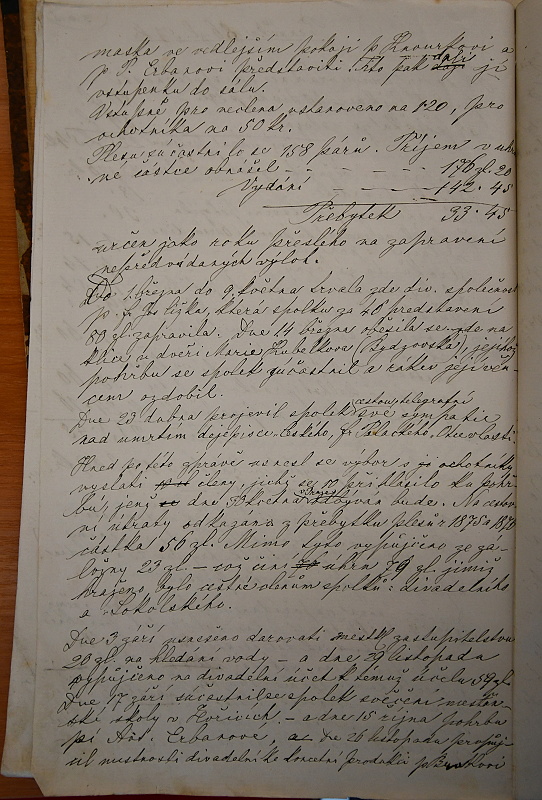 maska ve vedlejším pokoji p. Knourkovi a
p. P. Erbanovi představiti. Kto pak dají jí
vstupenku do sálu.
Vstupné pro nečlena ustanoveno na 1·20, pro
ochotníka na 50 kr.
Plesu súčastnilo se 158 párů. Příjem v úhr
né částce obnášel - - - - 176 zl. 20
Vydání - - - 142. 45
Přebytek 33. 45
určen jako roku přešlého na zapravení
nepředvídaných výloh.
Od 1. března do 9. května trvala zde div. společnost
p. F. Zolíška, která spolku za 40 představení
80 zl. zapravila. Dne 14 března oběsila se zde na
klice u dveří Marie Kubelkova (Bydžovska), jejíhož
pohřbu se spolek súčastnil a rakev její věn-
cem ozdobil.
Dne 23 dubna projevil spolek cestou telegrafní své sympatie
nad úmrtím dějepisce českého, Fr. Palackého, Otce vlasti.
Hned po této zprávě usnesl se výbor s jo ochotníky
vyslati členy, jichž se 10 přihlásilo ku pohř
bu, jenž dne května odbýván bude. Na cestov
ní útraty odkázána z přebytku plesu r 1875 a 1876
částka 56 zl. Mimo tyto vypůjčeno ze zá-
ložny 23 zl. – což činí úhrn 79 zl. jimiž
hraženo bylo cestné členům spolků: divadelního
a Sokolského.
Dne 3 září usnešeno darovati městsk. zastupitelstvu
20 zl. na hledání vody – a dne 30 listopadu
vypůjčeno na divadelní účet k témuž účelu 59 zl.
Dne 17 září súčastnil se spolek svěcení měšťan-
ské školy v Hořicích. – a dne 15 října pohřbu
pí Ant. Erbanové, Dne 26 listopadu propůj-
čil místnosti divadelní ke koncertní produkci p.